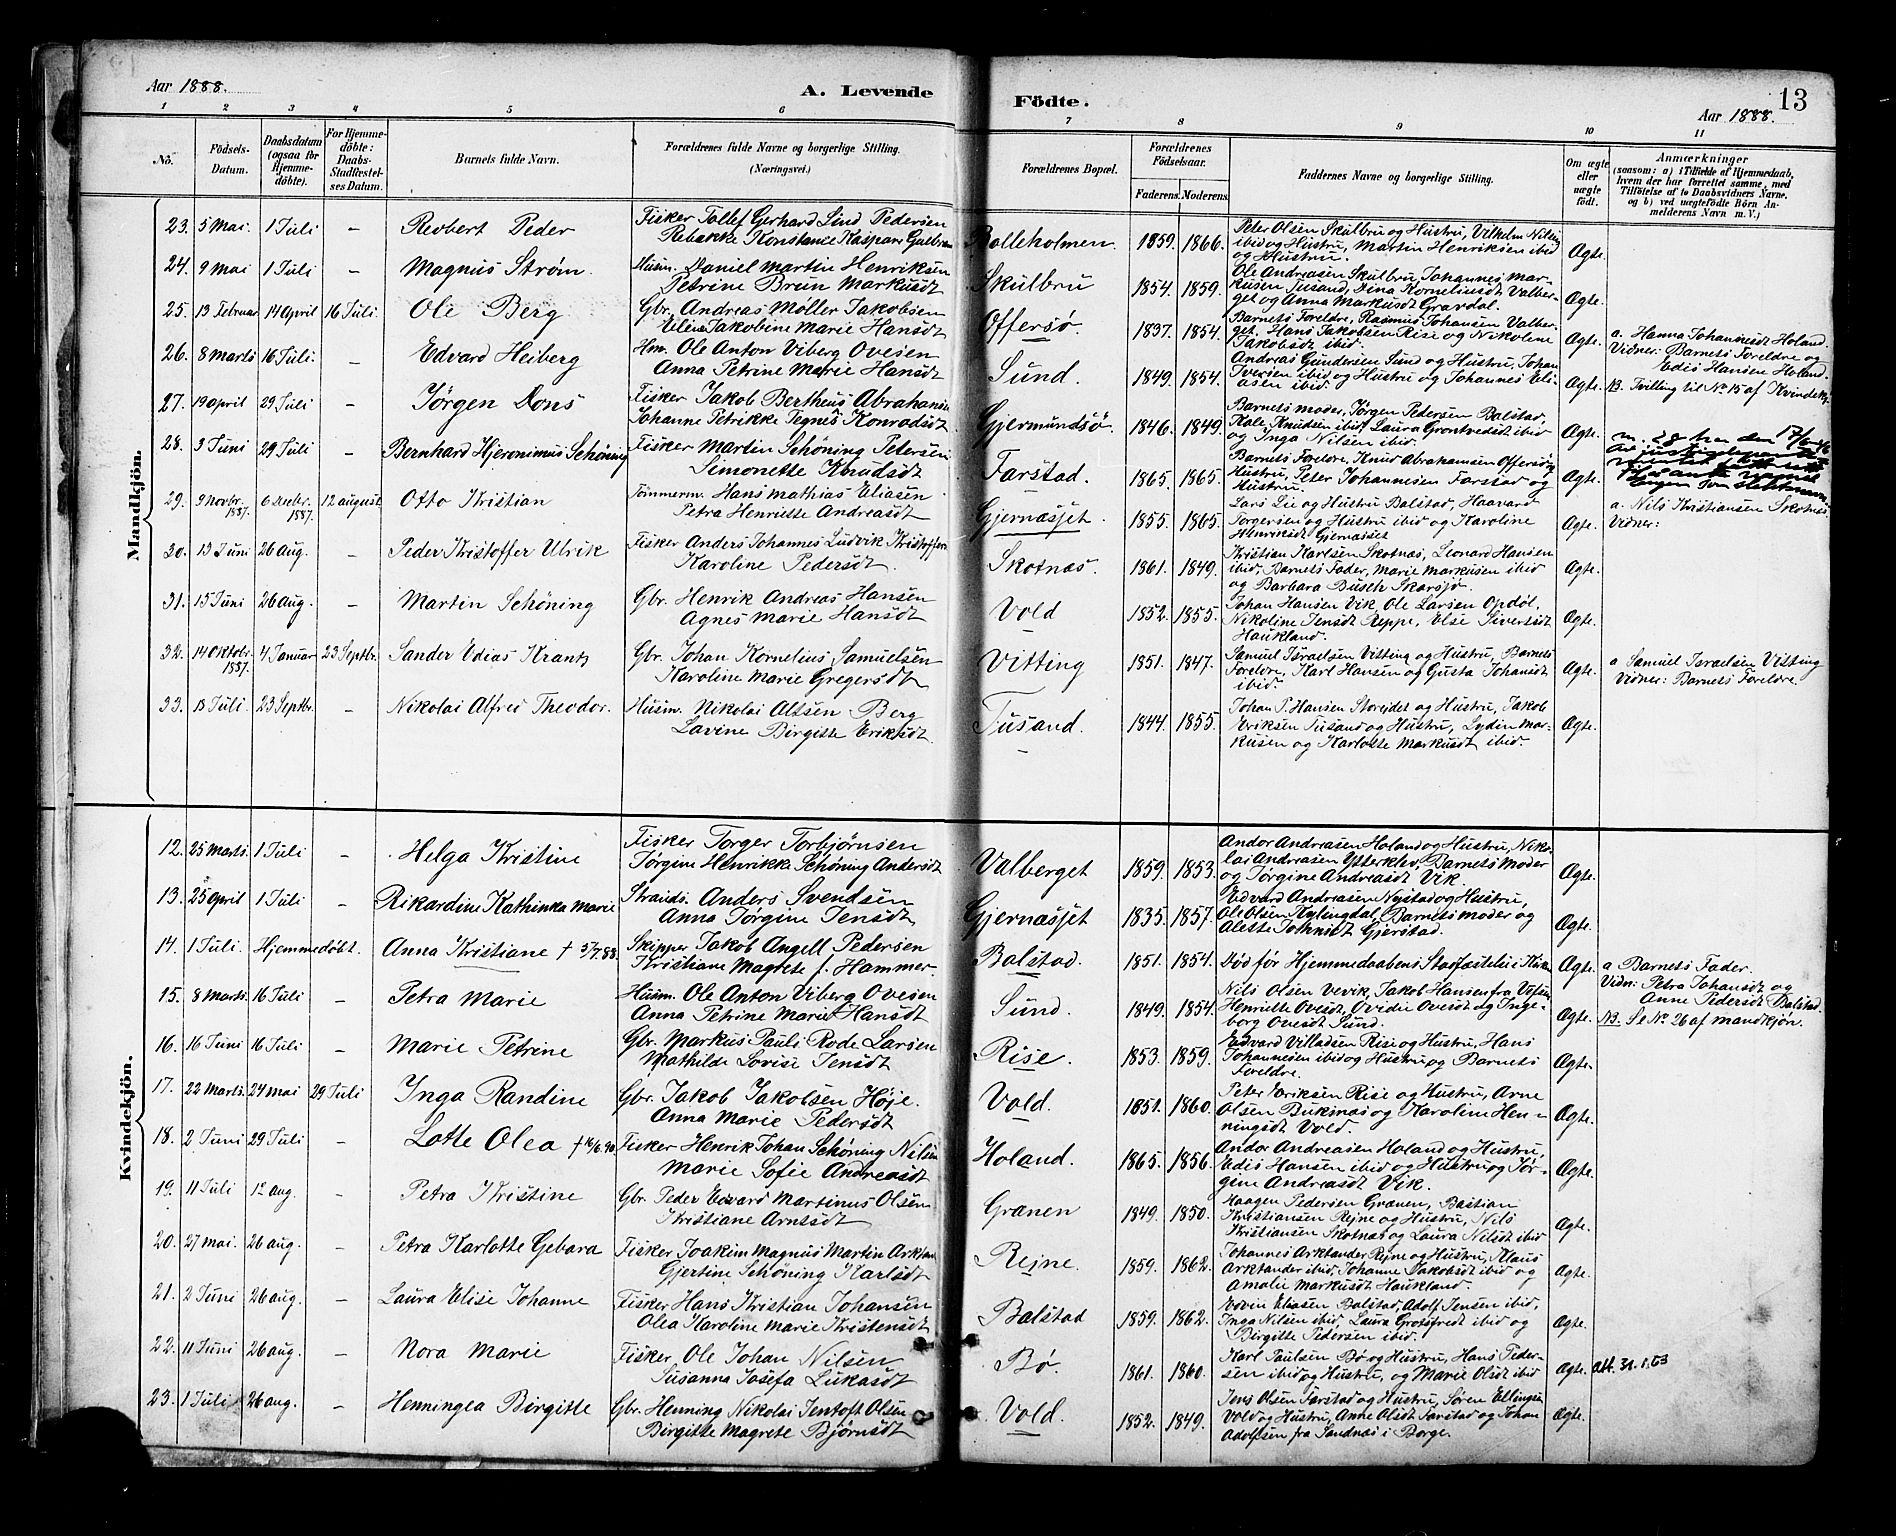 Aar 1888.
A. Levende
Födte.
13
Aar 1888.
1 2 3 4 5 6 7 8 9 10 11
No.
Födsels-
Datum.
Daabsdatum
(ogsaa för
Hjemme-
döbte).
For Hjemme-
döbte:
Daabs-
Stadfæstel-
ses Datum.
Barnets fulde Navn.
Forældrenes fulde Navne og borgerlige Stilling.
(Næringsvei.)
Forældrenes Bopæl.
Forældrenes
Födselsaar.
Faderens. Moderens.
Faddernes Navne og borgerlige Stilling.
Om ægte
eller
uægte
födt.
Anmærkninger
(saasom: a) i Tilfælde af Hjemmedaab,
hvem der har forrettet samme, med
Tilföielse af to Daabsvidners Navne,
og b) ved uægtefödte Börn An-
melderens Navn m. V.)
Mandkjön.
23. 5 Mai. 1 Juli – Robert Peder
Fisker Tollef Gerhard Lind Pedersen
Rebakke Konstance Kaspara
Balleholmen. 1859. 1866.
Peter Olsen Skulbru og Hustru, Vilhelm Nilsen
ibid og Hustru, Martin Henriksen ibid
og Hustru.
Ægte.
24. 9 Mai 1 Juli – Magnus Strøm.
Husm. Daniel Martin Henriksen
Petrine Brun Markusdt
Skulbru 1854. 1859.
Ole Andreasen Skulbru, Johannes Mar-
kusen Tusand, Dina Korneliusdt Valber-
get og Anna Markusdt Gravdal.
Ægte.
25. 13 Februar 14 April 16 Juli. Ole Berg
Gbr. Andreas Møller Jakobsen
Elen Jakobine Marie Hansdt
Offersø 1837. 1854.
Barnets Foreldre, Rasmus Johansen Valber-
get, Hans Jakobsen Rise og Nikoline
Jakobsdt ibid.
Ægte.
a. Hanna Johannesdt Holand.
Vidner: Barnets Foreldre og
Edis Hansen Holand.
26. 8 Marts 16 Juli. – Edvard Heiberg
Hm. Ole Anton Viberg Ovesen
Anna Petrine Marie Hansdt
Sund. 1849. 1854.
Andreas Gundersen Sund og Hustru, Johan
Iversen ibid og Hustru og Johannes Eli-
asen ibid.
Ægte.
NB. Tvilling til No 15 af Kvindekj.
27. 19 April 29 Juli – Jørgen Dons
Fisker Jakob Bertheus Abrahamsen
Johanne Petrikke Tegnes Konradsdt
Gjermundsø. 1846. 1849.
Barnets Moder, Jørgen Pedersen Balstad,
Kale Knudsen ibid, Laura Grontvedsdt ibid
og Inga Nilsen ibid.
Ægte.
28. 3 Juni 29 Juli – Bernhard Hjeronimus Schöning
Fisker Martin Schöning Petersen
Simonette Knudsdt
Farstad. 1865. 1865.
Barnets Foreldre, Knud Abrahamsen Offersø og
Hustru, Peter Johannesen Farstad og
Hustru.
Ægte.
29. 9 Novbr. 1887. 6 Decbr. 1887. 12 August Otto Kristian
Tömmerm. Hans Mathias Eliasen
Petra Henriette Andreasdt
Gjernæsset. 1855. 1865.
Lars Lie og Hustru Balstad, Haavard
Torgersen og Hustru ibid og Karoline
Henriksdt Gjernæsset
Ægte.
a. Nils Kristiansen Skotnes.
Vidner:
30. 13 Juni 26 Aug. – Peder Kristoffer Ulrik
Fisker Anders Johannes Ludvik Kristoffers
Karoline Pedersdt.
Skotnæs. 1861. 1849.
Kristian Karlsen Skotnæs, Leonard Hansen
ibid, Barnets Fader, Marie Markusen ibid
og Barbara Busch Skarsjø.
Ægte.
31. 15 Juni 26 Aug. – Martin Schöning
Gbr. Henrik Andreas Hansen
Agnes Marie Hansdt
Vold 1852. 1855.
Johan Hansen Vik, Ole Larsen Opdøl,
Nikoline Jensdt Reppe, Else Sivertsdt
Haukland.
Ægte.
32. 14 Oktobr. 1887. 4 Januar 23 Septbr. Sander Edias Krantz
Gbr. Johan Kornelius Samuelsen
Karoline Marie Gregersdt
Vitting 1851. 1847.
Samuel Israelsen Vitting og Hustru, Barnets
Foreldre, Karl Hansen og Gusta Johansdt
ibid.
Ægte.
a Samuel Israelsen Vitting
Vidner: Barnets Foreldre.
33. 13 Juli. 23 Septbr. – Nikolai Alfred Theodor.
Husm. Nikolai Altsen Berg
Lavine Birgitte Eriksdt.
Tusand. 1844. 1855.
Johan P. Hansen Storeidet og Hustru, Jakob
Eriksen Tusand og Hustru, Lydia Mar-
kusen og Karlotte Markusdt ibid.
Ægte.
Kvindekjön.
12. 25 Marts. 1 Juli – Helga Kristine
Fisker Torger Torbjørnsen
Jørgine Henrikke Schøning Andersdt
Valberget 1859. 1853.
Andor Andreasen Holand og Hustru, Niko-
lai Andreasen Ytterklev, Barnets Moder
og Jørgine Andreasdt Vik.
Ægte.
13. 25 April 1 Juli – Rikardine Kathinka Marie
Strands. Anders Svendsen
Anna Jørgine Jensdt
Gjernæsset 1835. 1857.
Edvard Andreasen Nystad og Hustru,
Ole Olsen Kylingdal, Barnets Moder og
Aleste Johnsdt Gjerstad.
Ægte.
14. 1 Juli. Hjemmedøbt. Anna Kristiane † 5/7.88.
Skipper Jakob Angell Pedersen
Kristiane Magrete f. Hammer.
Balstad. 1851. 1854.
Død før Hjemmedaabens Stadfæstelse i Kirken
Ægte.
a Barnets Fader.
Vidn: Petra Johansdt og
Anne Pedersdt Balstad.
15. 8 Marts 16 Juli – Petra Marie
Husm. Ole Anton Viberg Ovesen
Anna Petrine Marie Hansdt
Sund. 1849. 1854.
Nils Olsen Vevik, Jakob Hansen fra
Henriette Ovesdt, Ovedie Ovesdt og Inge-
borg Ovesdt Sund.
Ægte.
NB. Se No 26 af Mandkjön.
16. 16 Juni 16 Juli – Marie Petrine
Gbr. Markus Pauli Rode Larsen
Mathilde Lovise Jensdt
Rise. 1853. 1859.
Edvard Villadsen Rise og Hustru, Hans
Johannesen ibid og Hustru og Barnets
Foreldre.
Ægte.
17. 22 Marts. 24 Mai 29 Juli Inga Randine
Gbr. Jakob Jakobsen Høje.
Anna Marie Pedersdt
Vold. 1851. 1860.
Peter Eriksen Rise og Hustru, Arne
Olsen Buksnæs og Karoline Hen-
ningsdt Vold.
Ægte.
18. 2 Juni 29 Juli – Lotte Olea † 16/6.90
Fisker Henrik Johan Schöning Nilsen
Marie Sofie Andreasdt
Holand. 1865. 1856.
Andor Andreasen Holand og Hustru,
Edis Hansen ibid og Hustru og Jør-
gine Andreasdt Vik.
Ægte.
19. 11 Juli 12 Aug. – Petra Kristine
Gbr. Peder Edvard Martinus Olsen
Kristiane Arntsdt
Grænen 1849. 1850.
Haagen Pedersen Grænen, Bastian
Kristiansen Rejne og Hustru, Nils
Kristiansen Skotnæs og Laura Nilsdt ibid
Ægte.
20. 27 Mai. 26 Aug. – Petra Karlotte Gebara
Fisker Joakim Magnus Martin Arktan
Gjertine Schöning Karlsdt
Rejne. 1859. 1862.
Johannes Arktander Rejne og Hustru, Klaus
Arktander ibid, Johanne Jakobsdt ibid og
Amalie Markusdt Haukland.
Ægte.
21. 2 Juni 26 Aug. – Laura Elise Johanne
Fisker Hans Kristian Johansen
Olea Karoline Marie Kristensdt
Balstad 1859. 1862.
Edvin Eliasen Balstad, Adolf Jensen ibid,
Inga Nilsen ibid, Laura Grotsfredt ibid og
Birgitte Pedersen ibid.
Ægte.
22. 11 Juni 26 Aug. – Nora Marie
Fisker Ole Johan Nilsen
Susanna Josefa Lukasdt
Bø. 1861. 1860.
Karl Paulsen Bø og Hustru, Hans Peder-
sen ibid og Hustru, og Marie Olsdt ibid
Ægte.
att. 31.1.53
23. 1 Juli 26 Aug. – Henningea Birgitte
Gbr. Henning Nikolai Tentoft Olsen
Birgitte Magrete Bjørnsdt
Vold. 1852. 1849.
Jens Olsen Farstad og Hustru, Søren Ellingsen
Vold og Hustru, Anne Olsdt Farstad og Johan
Adolfsen fra Sandnæs i Borge.
Ægte.